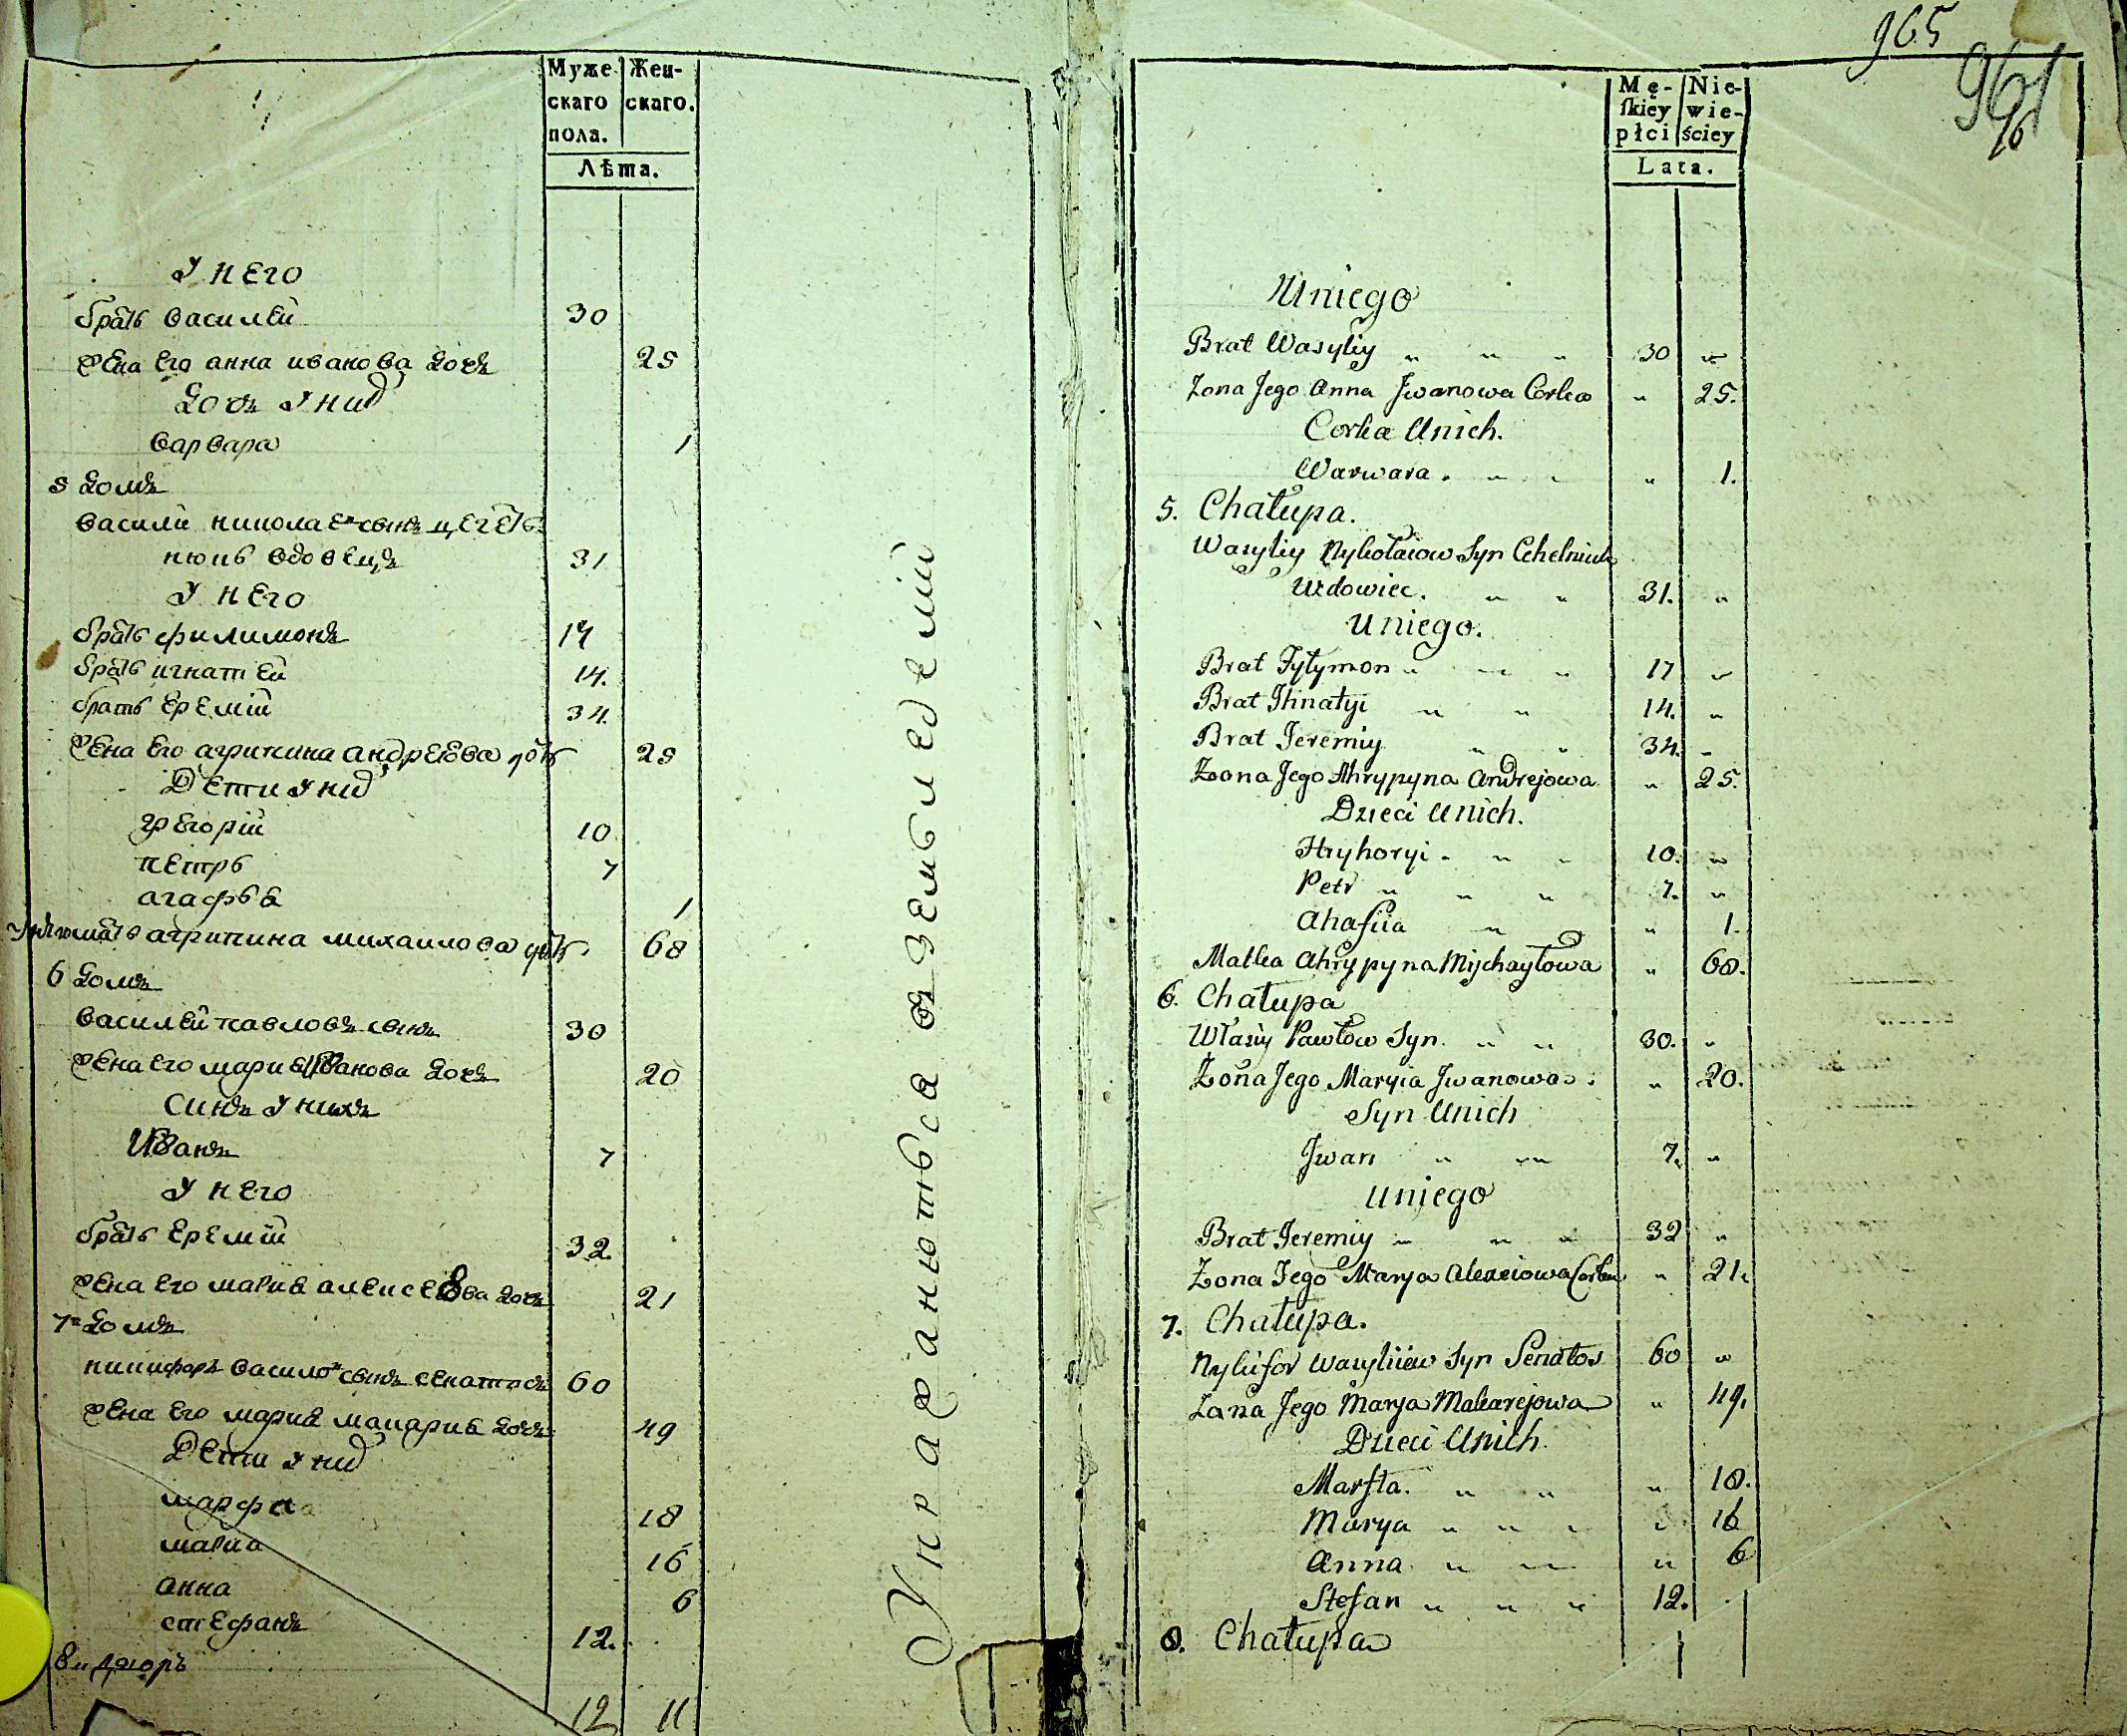 Муже-
скаго
пола.
Жен-
скаго.
Лѣта.
У него
братъ василей 30
жена его анна иванова дочь 25
дочь у них
варвара 1
5 домъ
василий николаевъ сынъ цегель
нюкъ вдовецъ 31
У него
братъ филимонъ 17
братъ игнатей 14.
братъ еремiй 34.
жена его агрипина андреева дочь 25
Дети у них
грегорiй 10
петръ 7
агафья 1
У него мать агрипина михаилова дочь 68
6 домъ
василей павловъ сынъ 30
жена его мария Иванова дочь 20
синъ у нихъ
Иванъ 7
У него
братъ еремiй 32
жена его мария алексеева дочь 21
7й домъ
никифоръ василовъ сынъ сенатосъ 60
жена его мария макария дочь 49
Дети у них
марфа 18
мария 16
анна 6
стефанъ 12.
8й дворъ
12 11
Упражнаютъся въ земъледелiй
965
961
Mę-
skiey
płci
Nie-
wie-
ściey
Lata.
Uniego
Brat Wasyliy „ „ „ 30 „
Zona Jego Anna Jwanowa Corka „ 25.
Corka Unich.
Warwara. „ „ „ 1.
5. Chałupa.
Wasyliy Nykołaiow Syn Cehelniuk
Wdowiec. „ „ 31. „
Uniego.
Brat Fyłymon „ „ „ 17 „
Brat Ihnatyi „ „ 14. „
Brat Jeremiy „ „ 34. „
Zona Jego Ahrypyna Andrejowa „ 25.
Dzieci Unich.
Hryhoryi. „ „ 10. „
Petr „ „ „ 7. „
Ahafiia „ „ „ 1.
Matka Ahrypyna Mychayłowa „ 68.
6. Chałupa
Własiy Pawłow Syn. „ „ 30. „
Zona Jego Maryia Jwanowa : „ 20.
Syn Unich
Jwan „ „ 7. „
Uniego
Brat Jeremiy „ „ „ 32 „
Zona Jego Marya Alexeiowa Corka „ 21.
7. Chałupa.
Nykifor Wasyliiew Syn Senatos 60 „
Zona Jego Marya Makarejowa „ 49.
Dzieci Unich.
Marfta. „ „ „ 18.
Marya „ „ „ „ 16
Anna „ „ „ 6
Stefan „ „ „ 12.
8. Chałupa